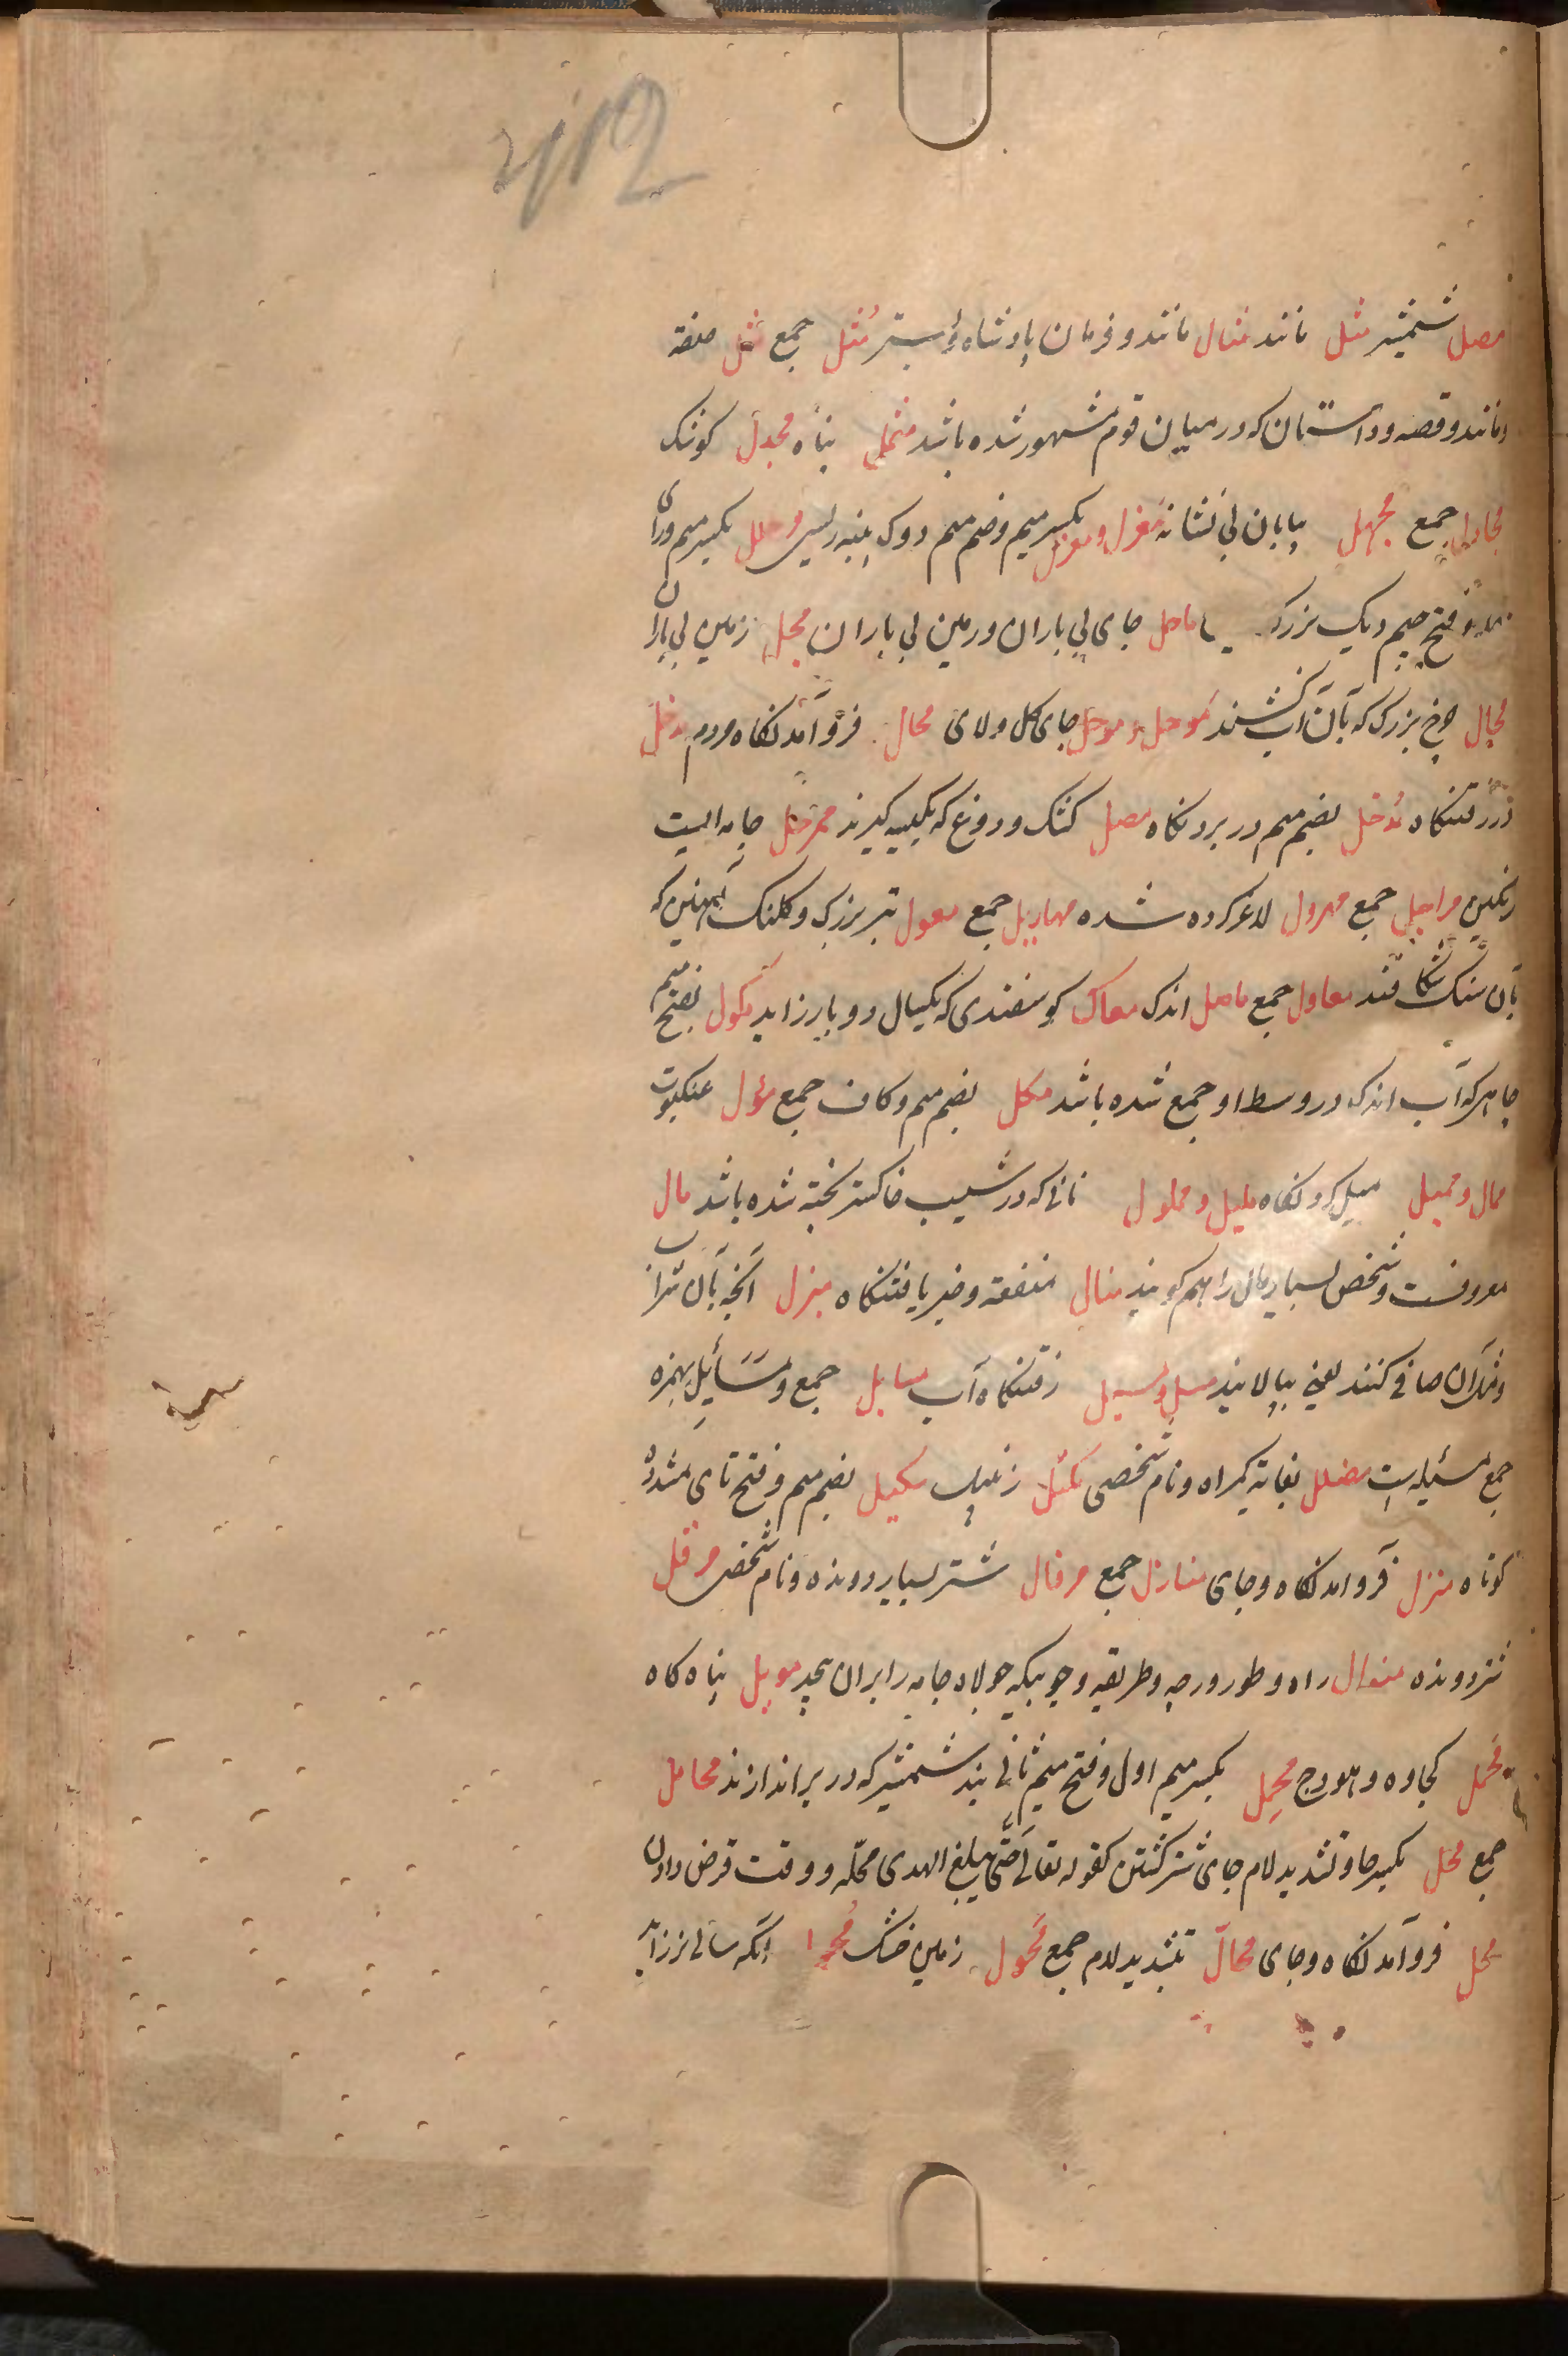 مصل شمشیر مثل مانند مثال مانند و فرمان پادشاه و بستر مُثل جمع مثل صفة
و مانند و قصه و داستان که در میان قوم مشهور شده باشد مثمل پناه مجدل کوشک
مجادل جمع مجهل بیابان بی نشانه مغزل و مغزل بکسر میم و ضم میم دوک پنبه ریسی مرجل بکسر میم و رای
و فتح جیم دیک بزرک ماحل جای بی باران و زمین بی باران محل زمین بی باران
محال چرخ بزرک که بآن آب کشند موحل و موحل جای کل و لای محال فروآمدنکاه مردم مدخل
دررفتنکاه مُدخل بضم میم دربردنکاه مصل کشک و دوغ که بکیسه کیرند ممرجل جامه ایست
رنکین مراجل جمع مهزول لاغر کرده شده مهازیل جمع معول تبر بزرک و کلنک آهنین که
بآن سنک شکافند معاول جمع ماصل اندک ممال کوسفندی که بکسال دو بار زاید مکول بفتح میم
چاهی که آب اندک در وسط او جمع شده باشد مکل بضم میم و کاف جمع مؤل عنکبوت
ممال و ممیل میل کردنکاه ملیل و مملول نانی که در شیب خاکستر پخته شده باشد مال
معروفست و شخص بسیار مال را هم کویند منال منفعة و خیر یافتنکاه مبزل آنچه بآن شراب
و مانند آن صافی کنند یعنی بپالایند مسل و مسیل رفتنکاه آب مسایل جمع و مَسَائِل بهمزه
جمع مسئله است مضلل بغایة کمراه و نام شخصی مکتل زنبیل مکتل بضم میم و فتح تای مشدد
کوتاه منزل فروآمدنکاه و جای منازل جمع مرقال شتر بسیار دونده و نام شخص مرقل
تیز دونده منوال راه و طور و رجه و طریقه و چوبیکه جولاه جامه را بر آن پیچد موئل پناه کاه
مَحمل کجاوه و هودج مِحمل بکسر میم اول و فتح میم ثانی بند شمشیر که در بر اندازند محامل
جمع محل بکسر حا و تشدید لام جای شتر کشتن کقوله تعالی حتّی یبلغ الهدی محلّه و وقت قرض دادن
محل فروآمدنکاه و جای محالّ بتشدید لام جمع مَحول زمین خشک آنکه سالی نزاید